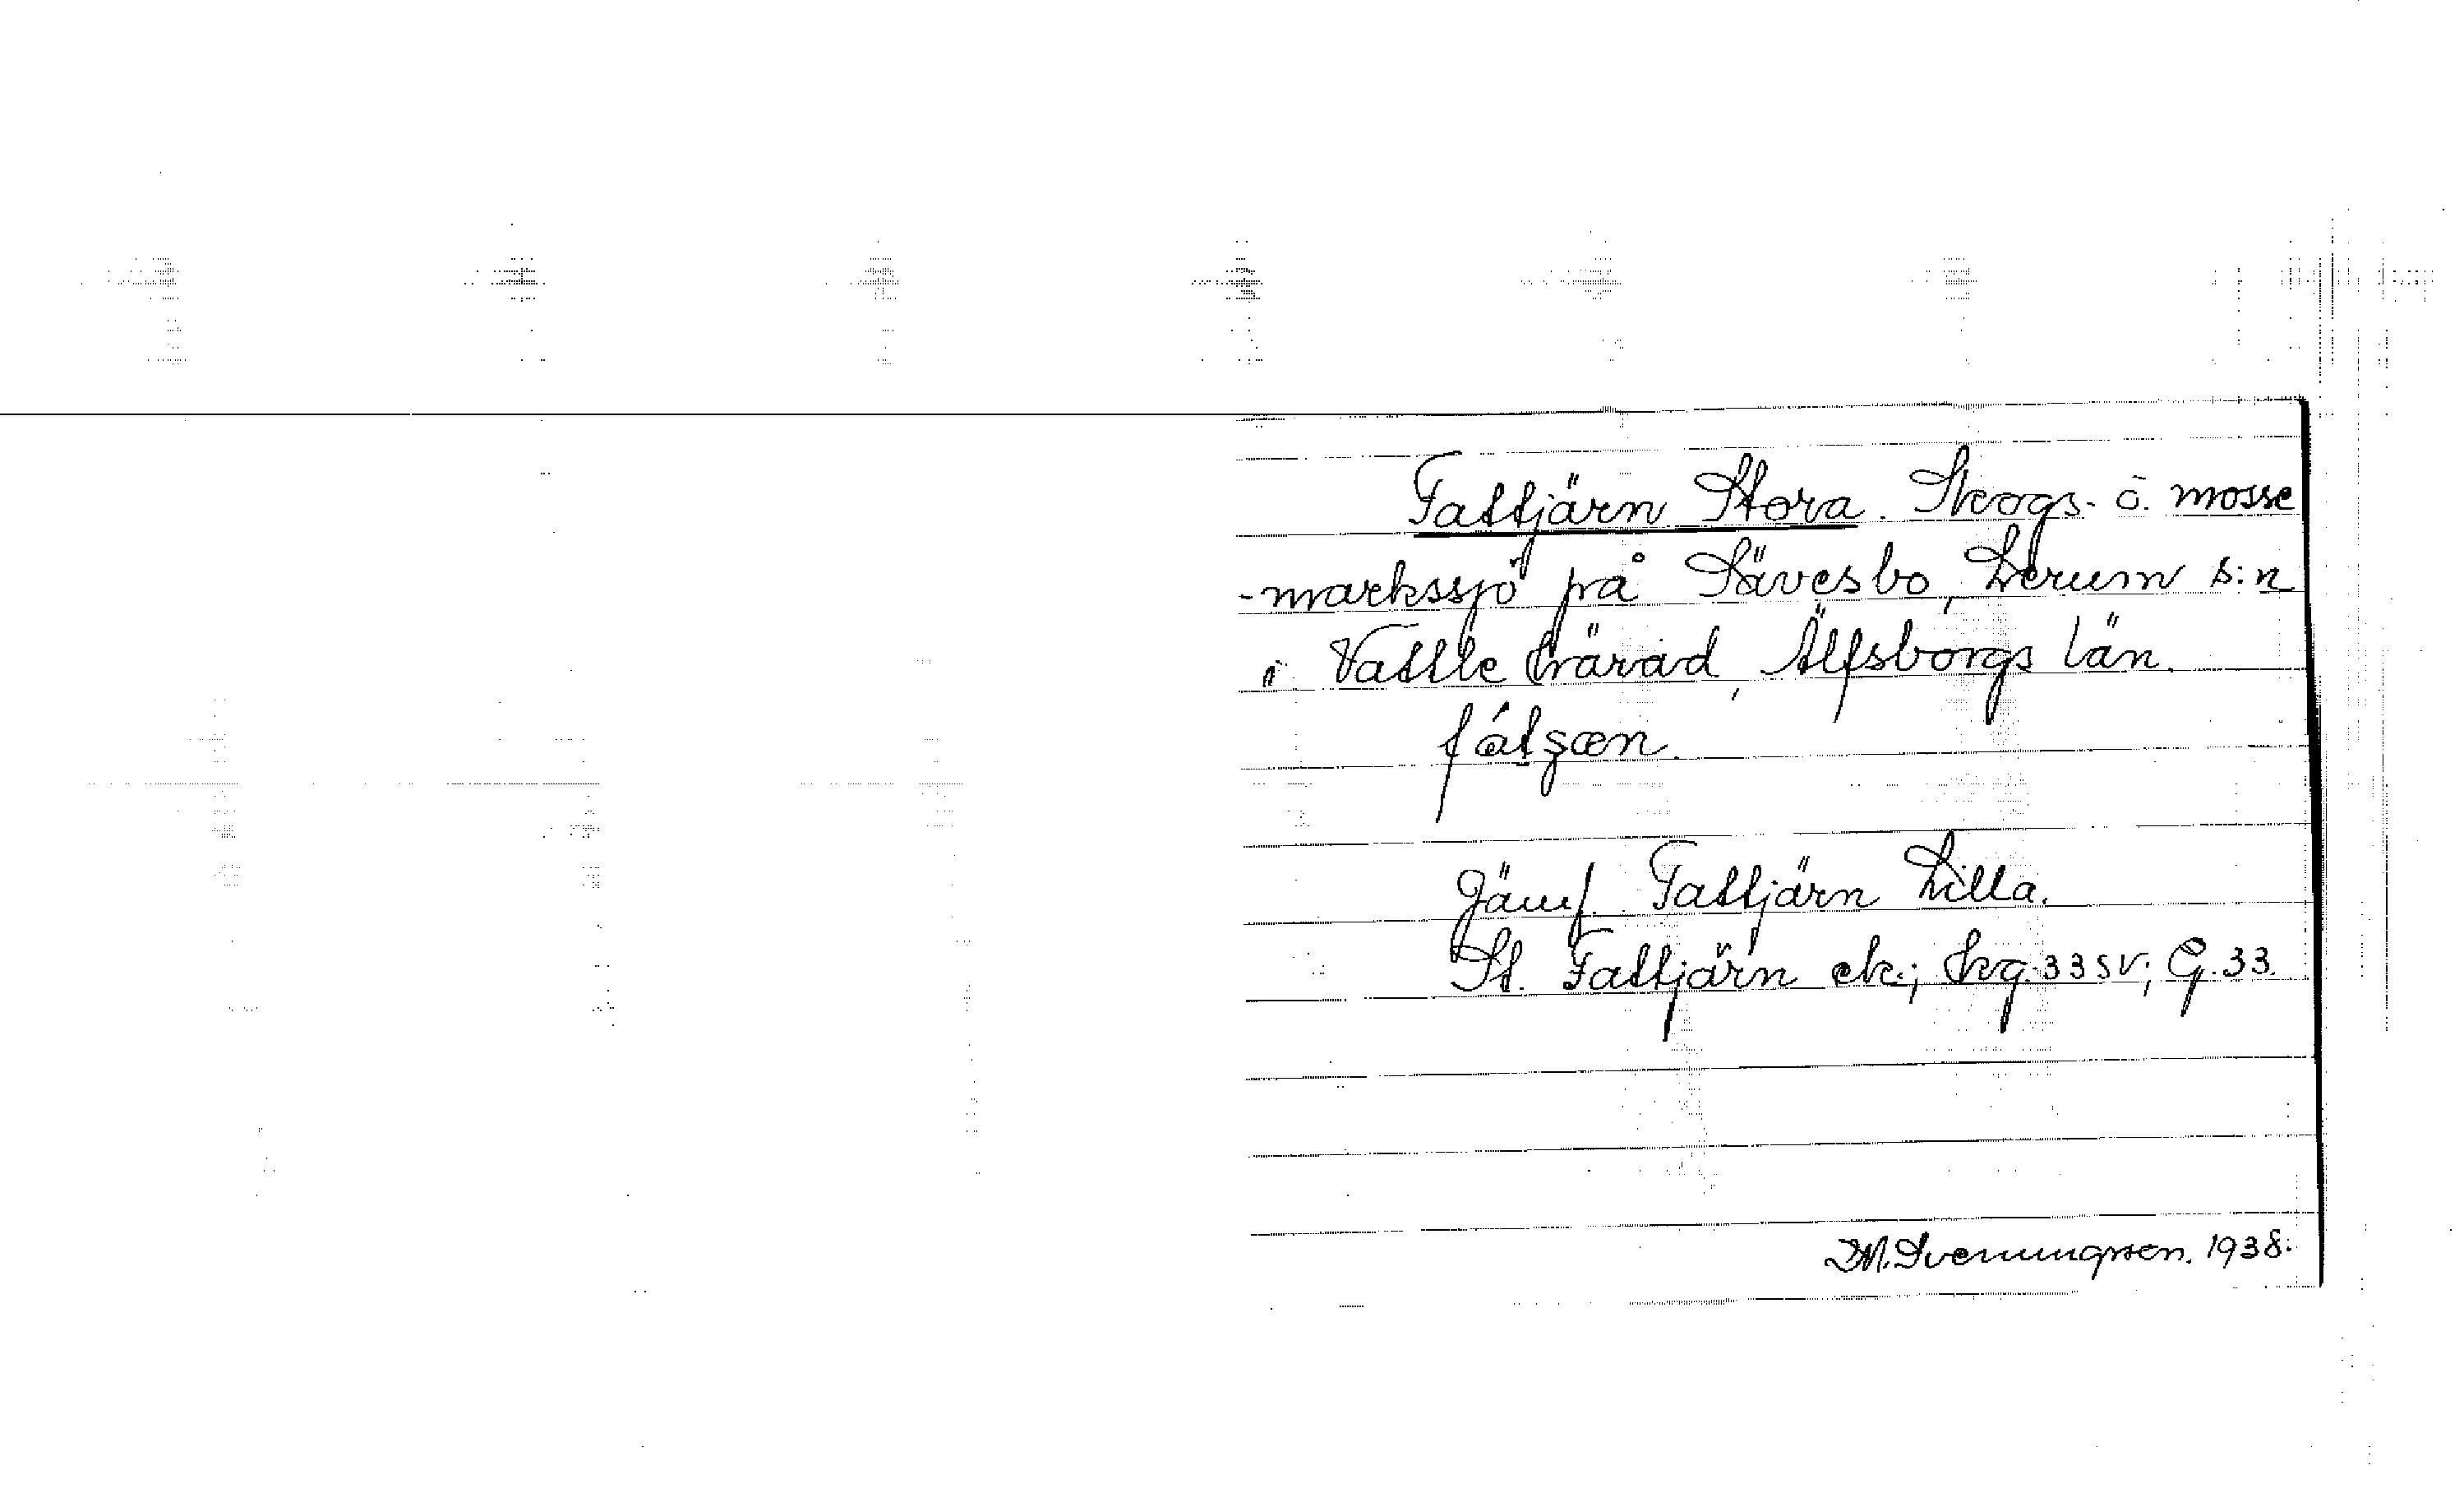 Fattjärn Stora. Skogs- o. mosse
-markssjö på Sävesbo, Lerum s:n
i Vättle härad, Älfsborgs län.
fátʂæn.
Jämf. Fattjärn Lilla.
St. Fattjärn ek.; Skg. 33 SV; G. 33.
D.M. Svenungsson. 1938.